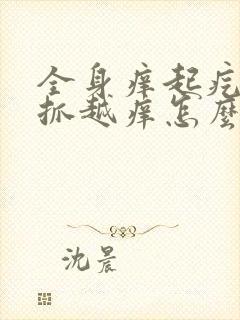 全身痒起疙
抓越痒怎麼
沈晨